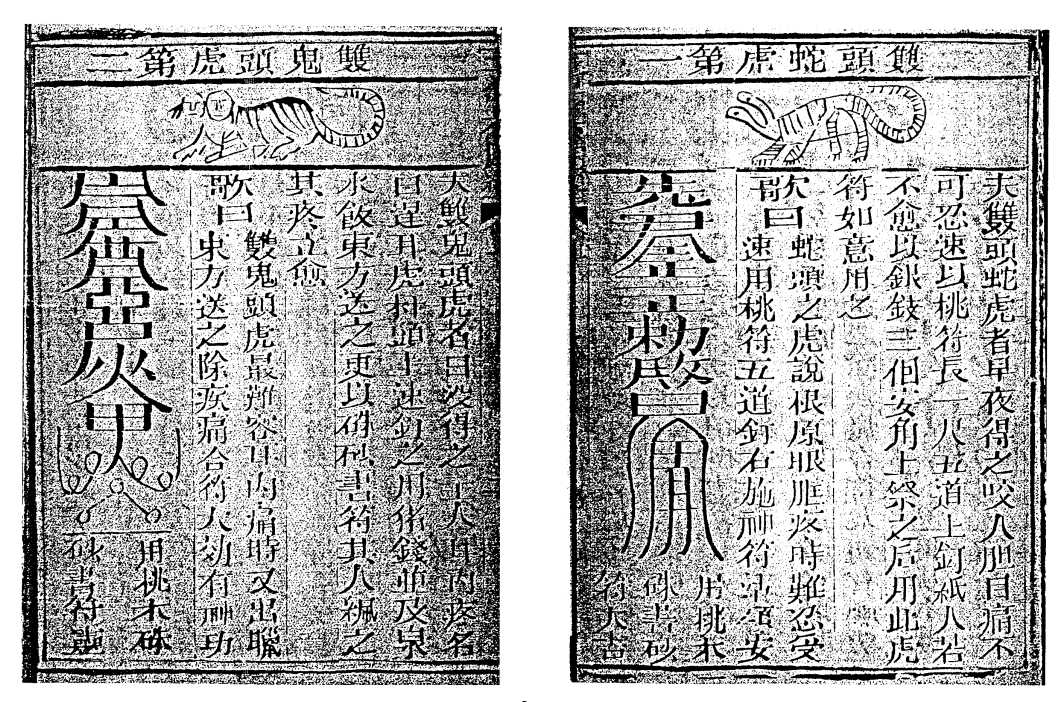 雙頭蛇虎第一
夫雙頭蛇虎者早夜得之咬人胆目痛不
可忍速以桃符長一尺五道上釘紙人若
不愈以銀錢三個安角上祭之后用此虎
符如意用之
歌曰蛇頭之虎說根原眼眶疼時難忍受
速用桃符五道釘右施神符
安
用桃木
硃書砂
符大吉
雙鬼頭虎第二
夫雙鬼頭虎者日沒得之主人耳內疼名
曰
耳虎
頭上速釘之用猪錢並及泉
水飯東方送之更以硃砂書符其人佩之
其疼立愈
歌曰雙鬼頭虎最難容耳內痛時又出膿
東方送之除疾病合符大効有神功
用桃木硃
砂書符